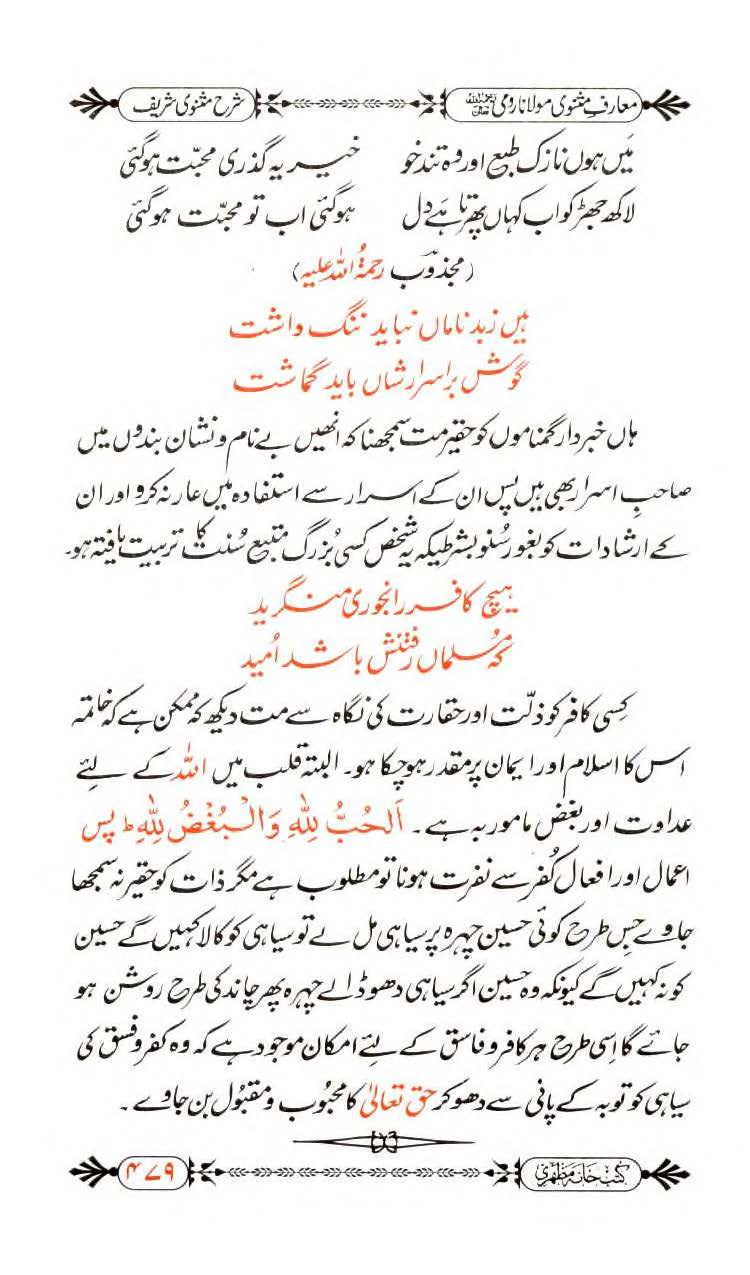 معارف مثنوی مولانا رومی رحمۃ اللہ تعالیٰ علیہ
شرح مثنوی شریف
مَیں ہوں نازک طبع اور وہ تند خو خیر یہ گذری محبّت ہوگئی
لاکھ جھڑکو اب کہاں پھرتا ہے دل ہوگئی اب تو محبّت ہوگئی
(مجذوب رحمۃُ اللہ علیہ)
ہیں زبدناماں نباید ننگ داشت
گوش بر اسرار شاں باید گماشت
ہاں خبردار گمناموں کو حقیر مت سمجھنا کہ انھیں بے نام و نشان بندوں میں
صاحبِ اسرار بھی ہیں پس ان کے اسرار سے استفادہ میں عار نہ کرو اور ان
کے ارشادات کو بغور سُنو بشرطیکہ یہ شخص کسی بُزرگ متبع سُنت کا تربیت یافتہ ہو۔
ہیچ کافر را بخوری منگرید
کہ مُسلماں رفتنش باشد اُمید
کِسی کافر کو ذلّت اور حقارت کی نگاہ سے مت دیکھ کہ ممکن ہے کہ خاتمہ
اس کا اسلام اور ایمان پر مقدر ہوچکا ہو۔ البتہ قلب میں اللہ کے لئے
عداوت اور بغض مامور بہ ہے۔ اَلحُبُّ لِلّٰہِ وَالْبُغْضُ لِلّٰہِ ط پس
اعمال اور افعال کُفر سے نفرت ہونا تو مطلوب ہے مگر ذات کو حقیر نہ سمجھا
جاوے جِس طرح کوئی حسین چہرہ پر سیاہی مل لے تو سیاہی کو کالا کہیں گے حسین
کو نہ کہیں گے کیونکہ وہ حسین اگر سیاہی دھو ڈالے چہرہ پھر چاند کی طرح روشن ہو
جائے گا اِسی طرح ہر کافر و فاسق کے لئے امکان موجود ہے کہ وہ کفر و فسق کی
سیاہی کو توبہ کے پانی سے دھوکر حق تعالیٰ کا محبوب و مقبُول بن جاوے۔
کتب خانہ مظہری
۴۷۹